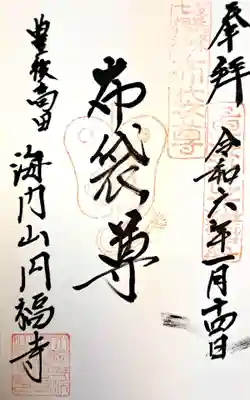 奉拝
令和六年一月十四日
布袋尊
豊後高田
海門山円福寺